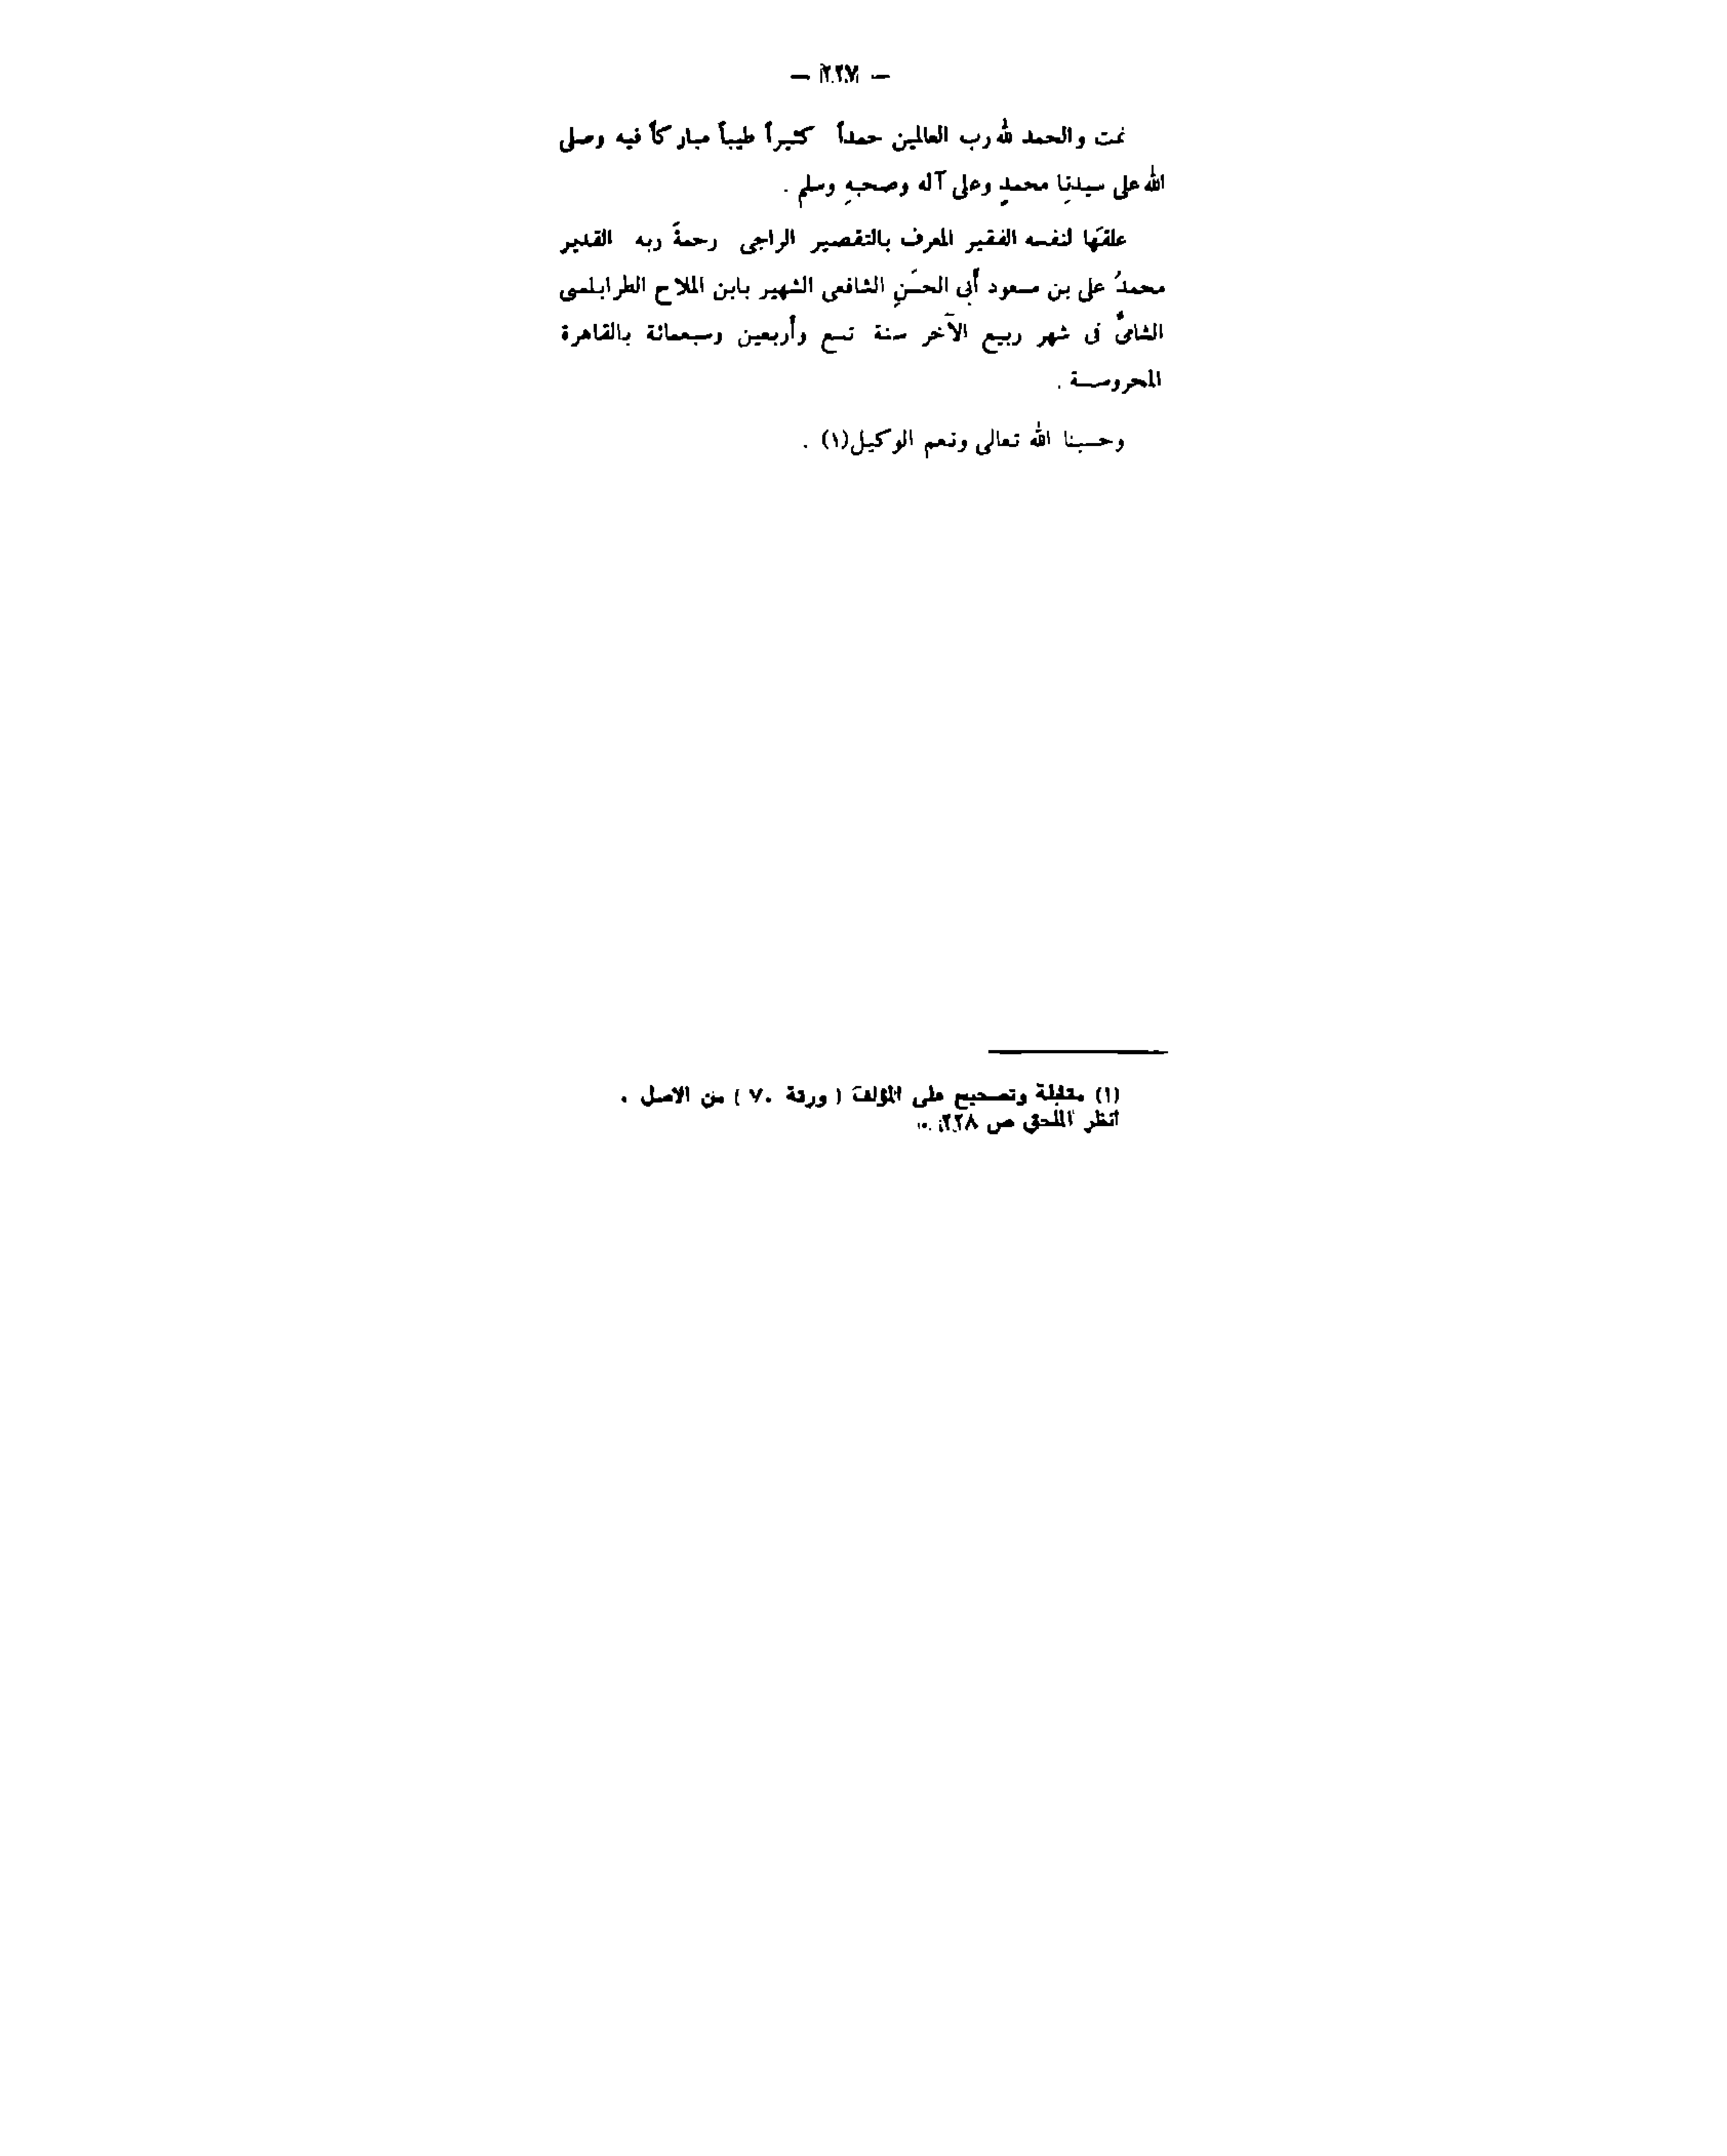 — ٢٢٧ —
تمت والحمد لله رب العالمين حمداً كثيراً طيباً مباركاً فيه وصلى
الله على سيدنِا محمدٍ وعلى آله وصحبهِ وسلم .
علقهَا لنفسه الفقير المعرف بالتقصير الراجى رحمةَ ربه القدير
محمدُ على بن مسعود أبى الحسَنِ الشافعى الشهير بابن الملاح الطرابلسى
الشامىُّ فى شهر ربيع الآخر سنة تسع وأربعين وسبعمائة بالقاهرة
المحروسة .
وحسبنا الله تعالى ونعم الوكيل(١) .
(١) مقابلة وتصحيح على المؤلف ( ورقة ٧٠ ) من الأصل .
انظر الملحق ص ٢٢٨ .